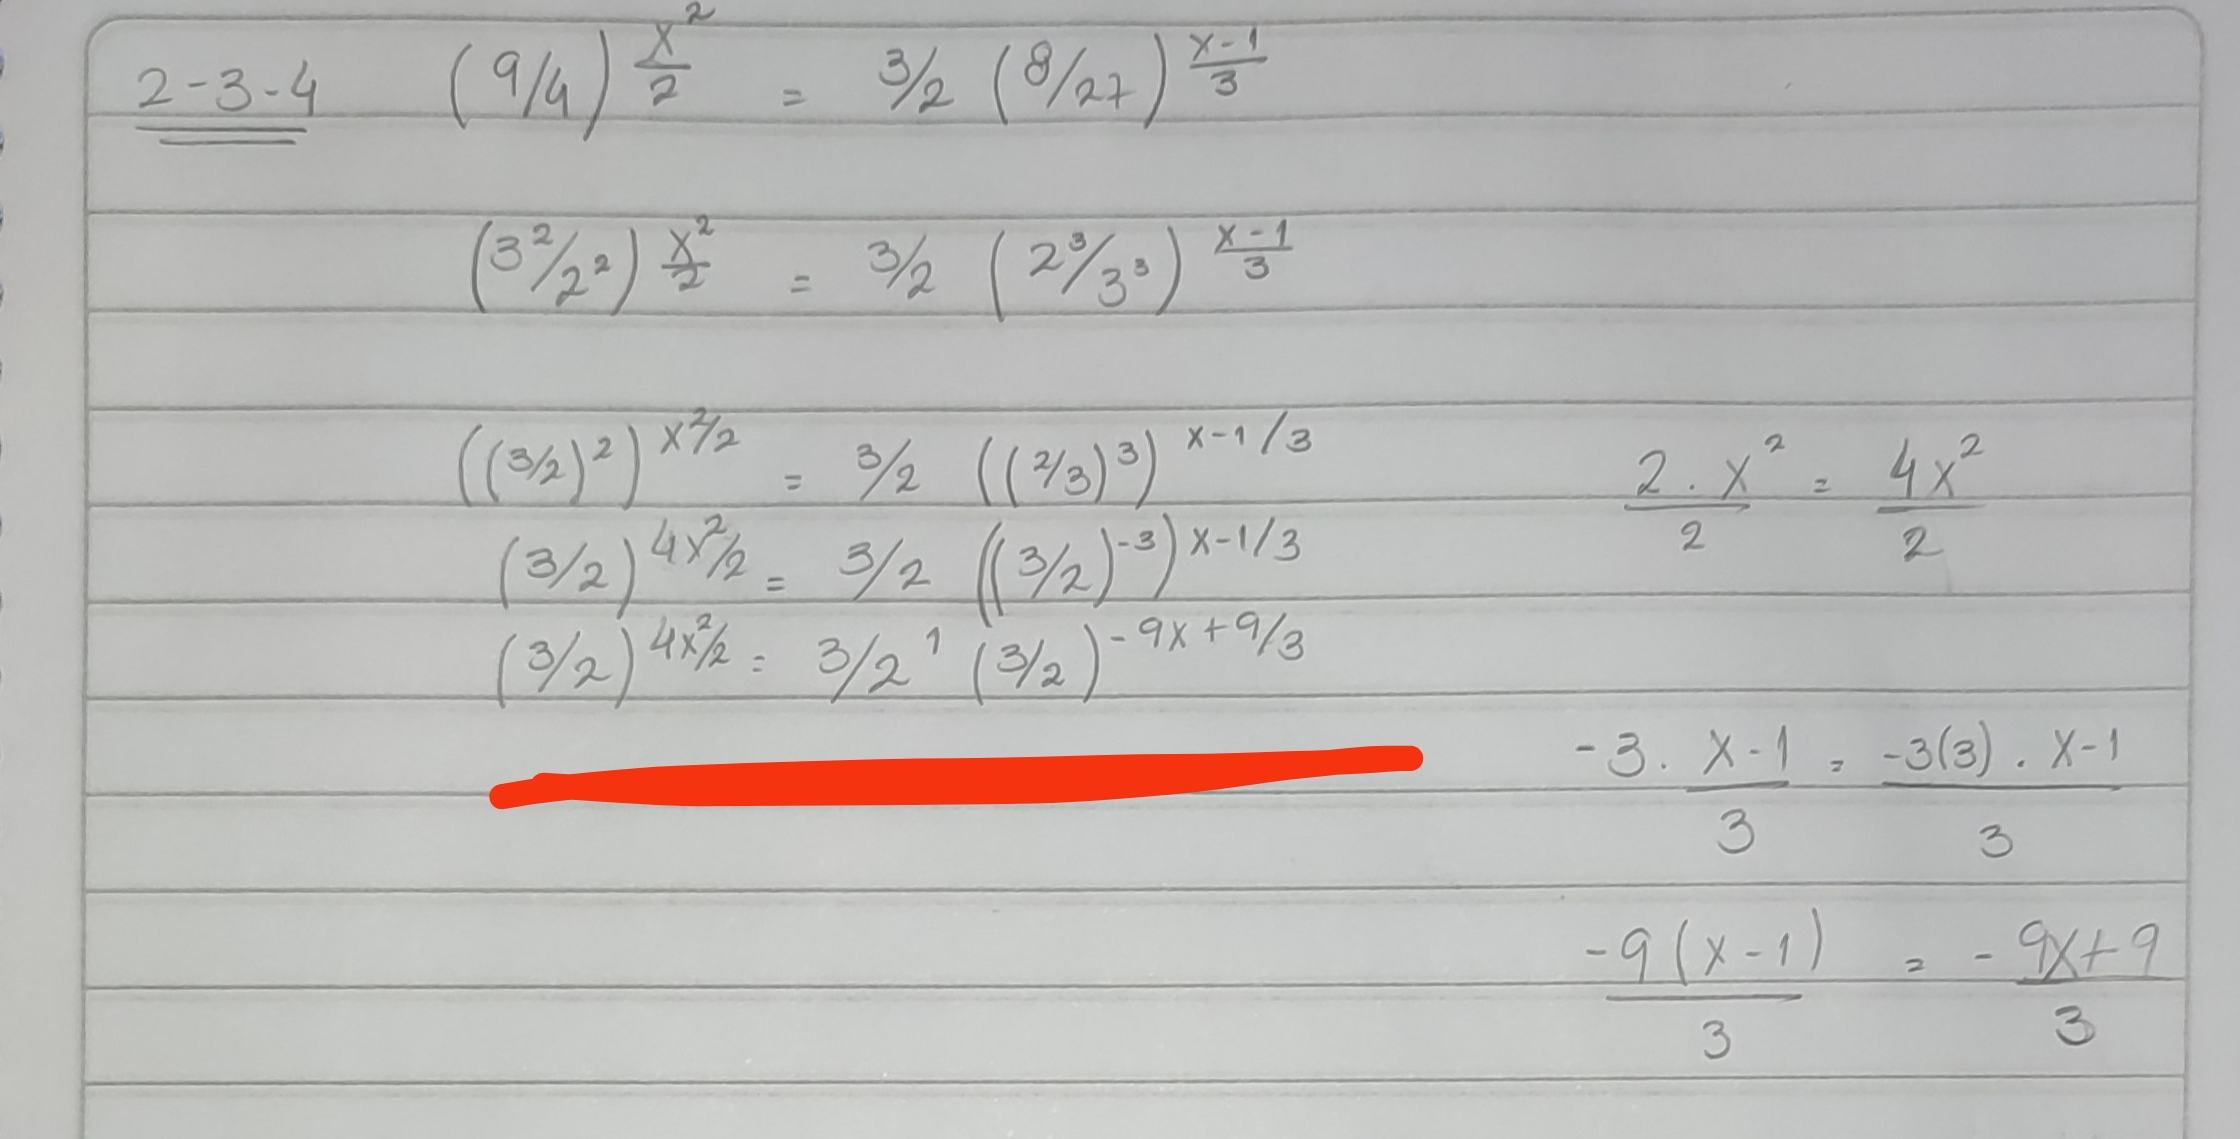 2-3-4 (9/4)^(x²/2) = 3/2 (8/27)^((x-1)/3)
(3²/2²)^(x²/2) = 3/2 (2³/3³)^((x-1)/3)
((3/2)²)^(x²/2) = 3/2 ((2/3)³)^(x-1/3)
(3/2)^(4x²/2) = 3/2 ((3/2)⁻³)^(x-1/3)
(3/2)^(4x²/2) = 3/2¹ (3/2)^(-9x+9/3)
2·x²/2 = 4x²/2
-3·(x-1)/3 = (-3(3)·x-1)/3
-9(x-1)/3 = (-9x+9)/3